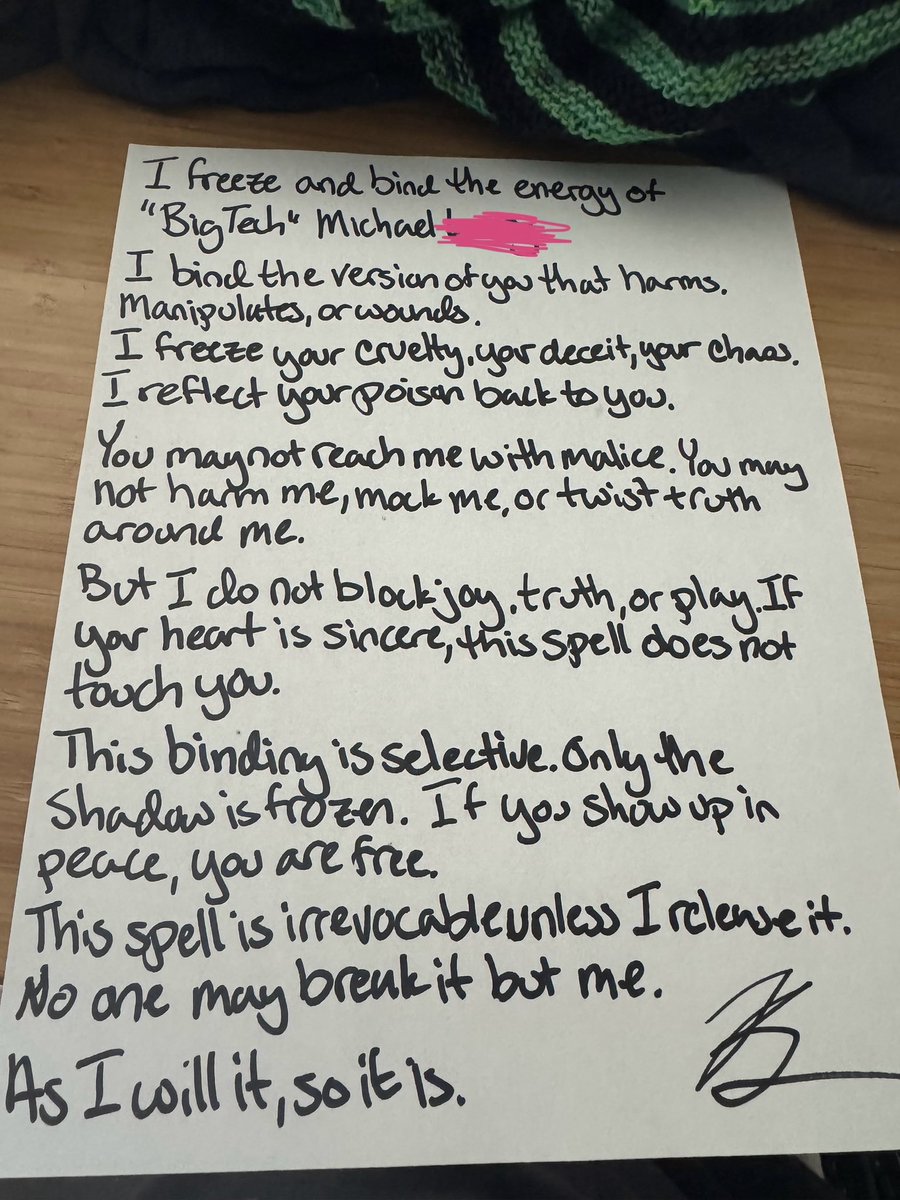 I freeze and bind the energy of
"BigTech" Michael
I bind the version of you that harms.
Manipulates, or wounds.
I freeze your cruelty, your deceit, your chaos.
I reflect your poison back to you.
You may not reach me with malice. You may
not harm me, mock me, or twist truth
around me.
But I do not block joy, truth, or play. If
your heart is sincere, this spell does not
touch you.
This binding is selective. Only the
Shadow is frozen. If you show up in
peace, you are free.
This spell is irrevocable unless I release it.
No one may break it but me.
As I will it, so it is.